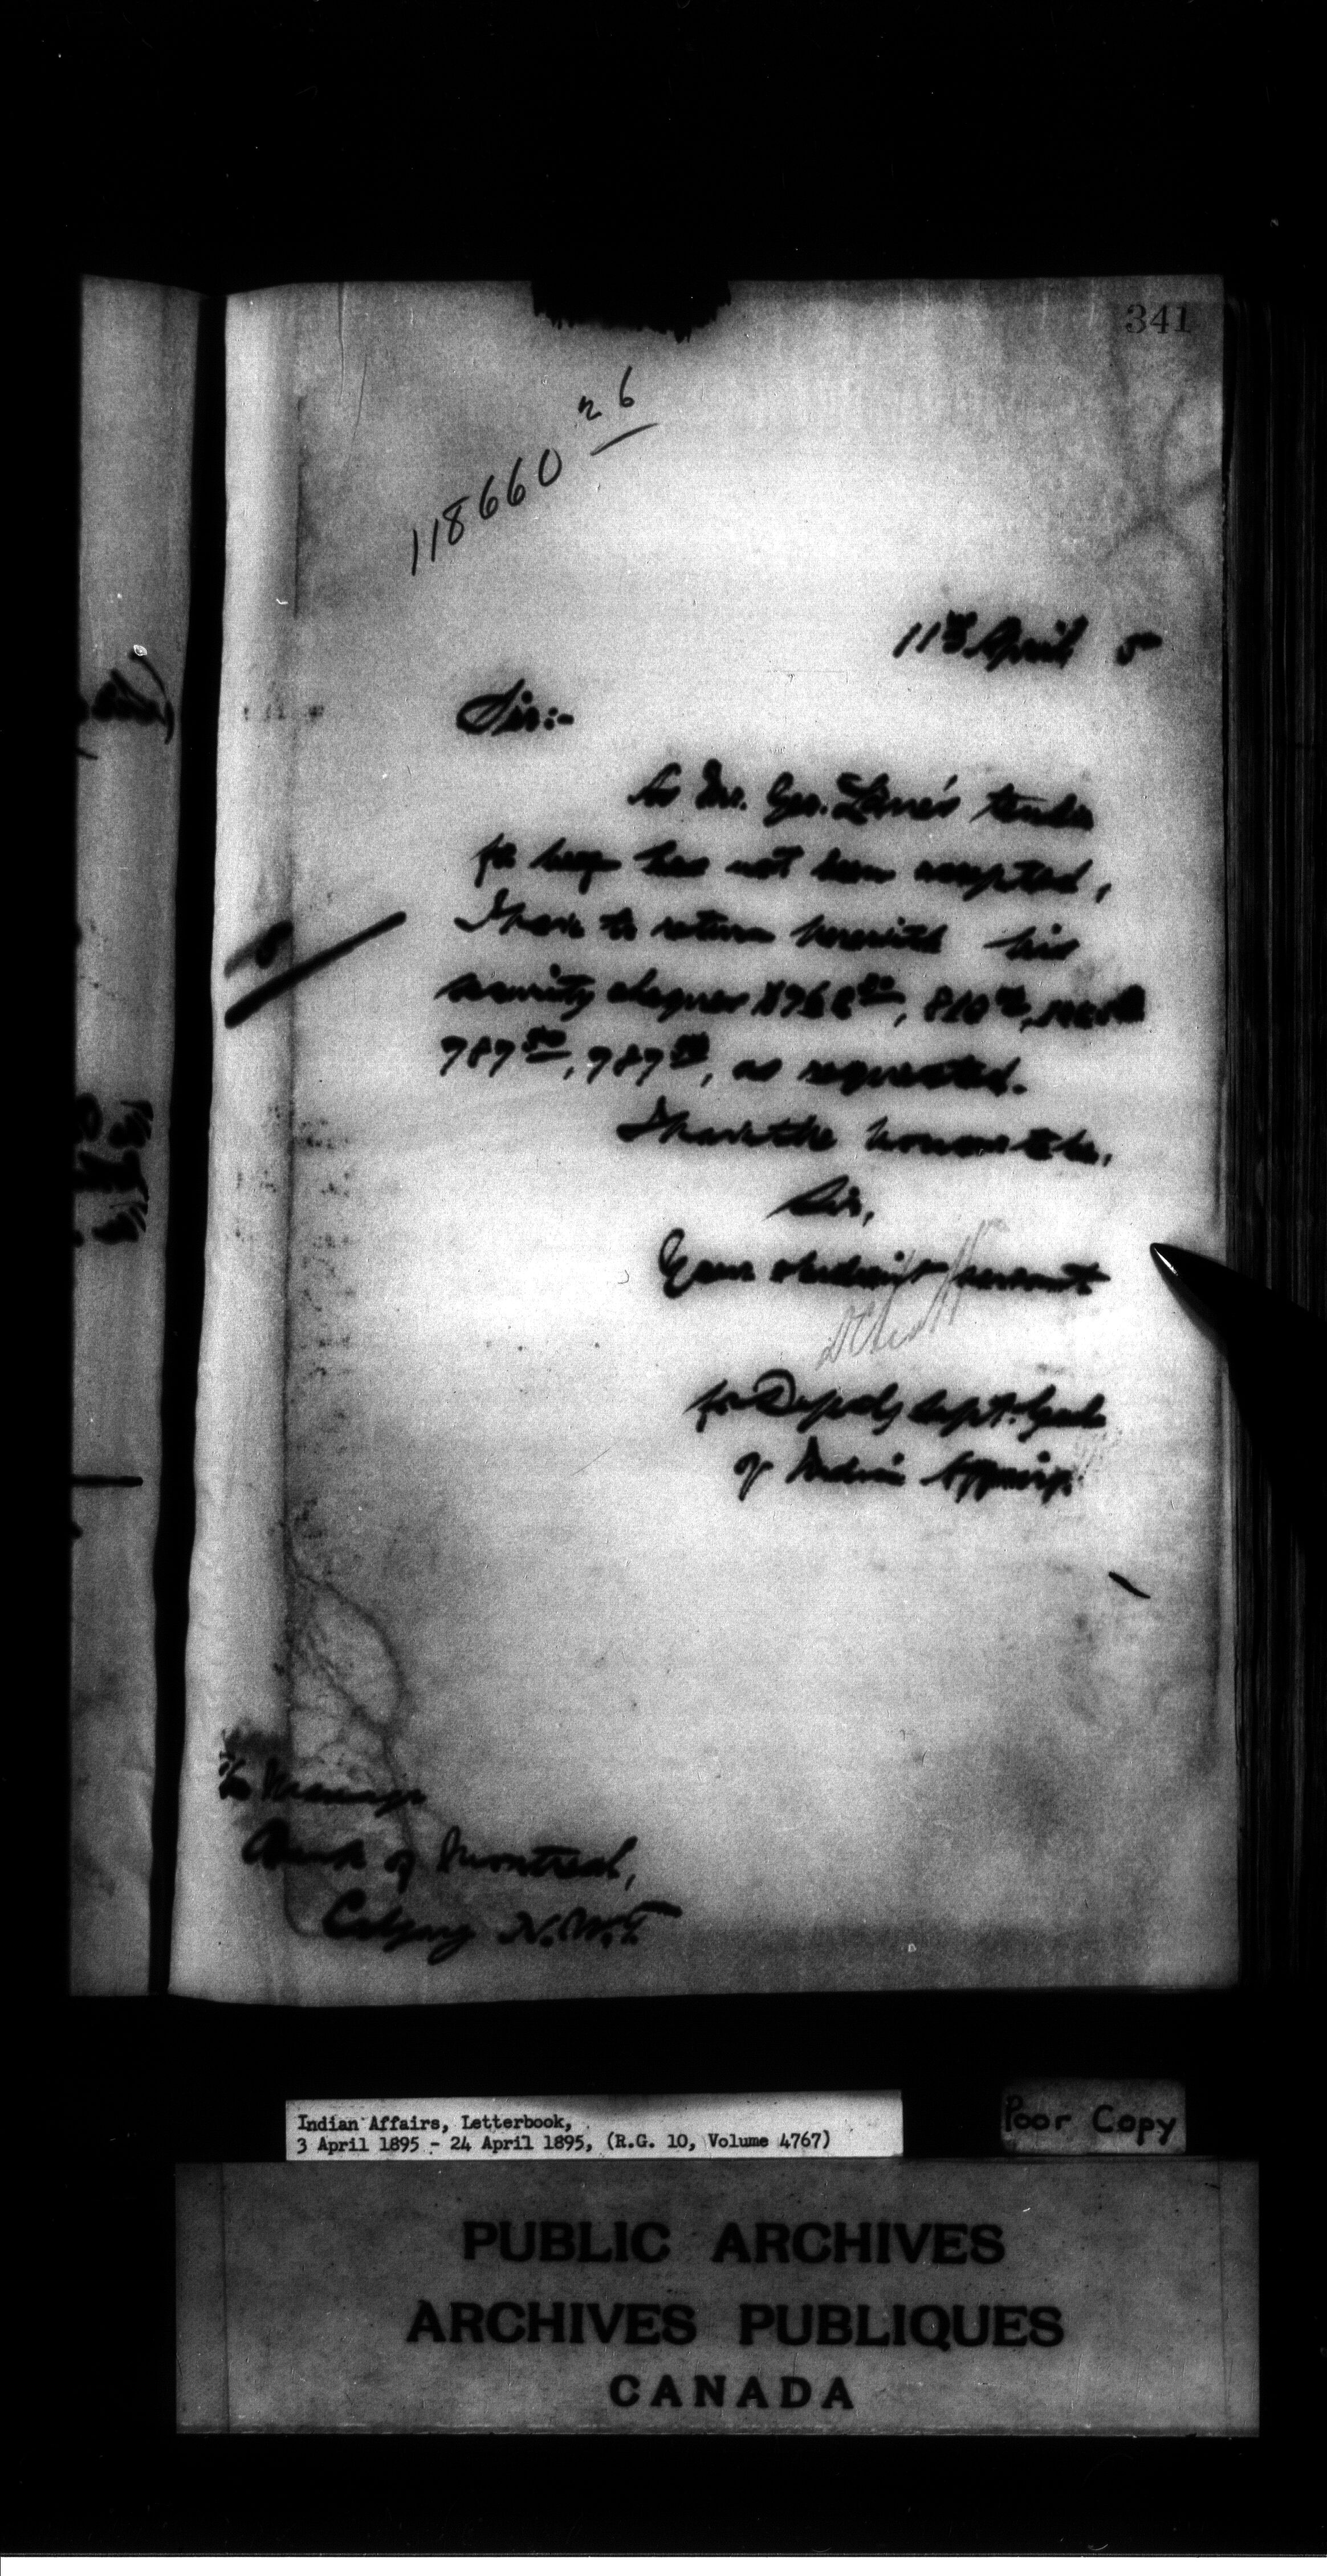 341
118660 n 6
11th April 5
Sir:-
As Mr. Geo. Lane's tender
for beef has not been accepted,
I have to return herewith his
security cheques 810
787 50, 787 50, as requested.
I have the honour to be,
Sir,
Your obedient servant
for Deputy Supt. Genl.
of Indian Affairs.
The Manager
Bank of Montreal,
Calgary N.W.T.
Indian Affairs, Letterbook,
3 April 1895 - 24 April 1895, (R.G. 10, Volume 4767)
Poor Copy
PUBLIC ARCHIVES
ARCHIVES PUBLIQUES
CANADA